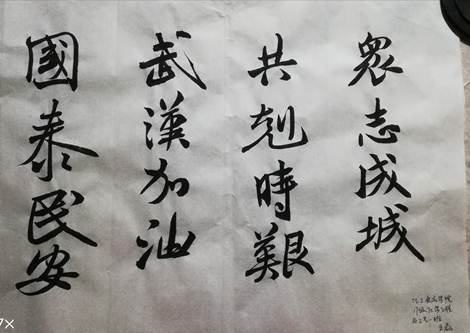 衆志成城
共剋時艱
武漢加油
國泰民安